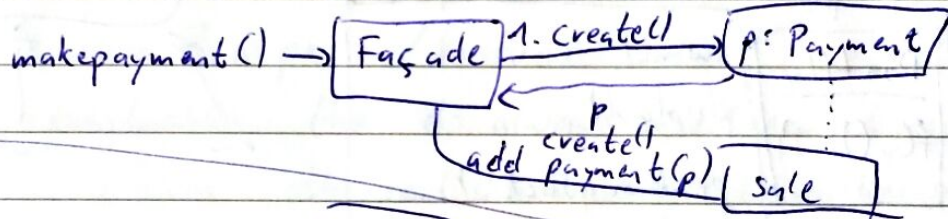 makepayment() → Façade
1. create()
p: Payment
p
create()
add payment(p)
sale